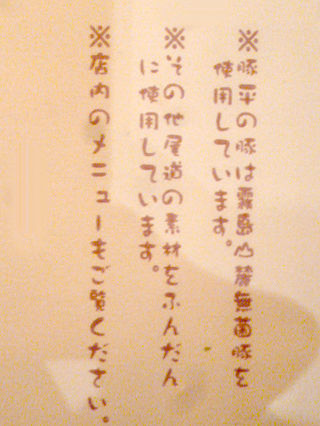 ※豚平の豚は霧島山麓無菌豚を
使用しています。
※その他尾道の素材をふんだん
に使用しています。
※店内のメニューもご覧ください。